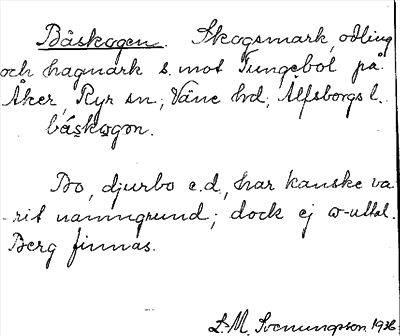 Båskogen. Skogsmark, odling
och hagmark s. mot Tungebol på
Åker, Ryr sn, Väne hd, Älfsborgs l.
båskogon.
Bo, djurbo e.d., har kanske va-
rit namngrund; dock ej ω-uttal.
Berg finnas.
L.M. Svenungsson 1936